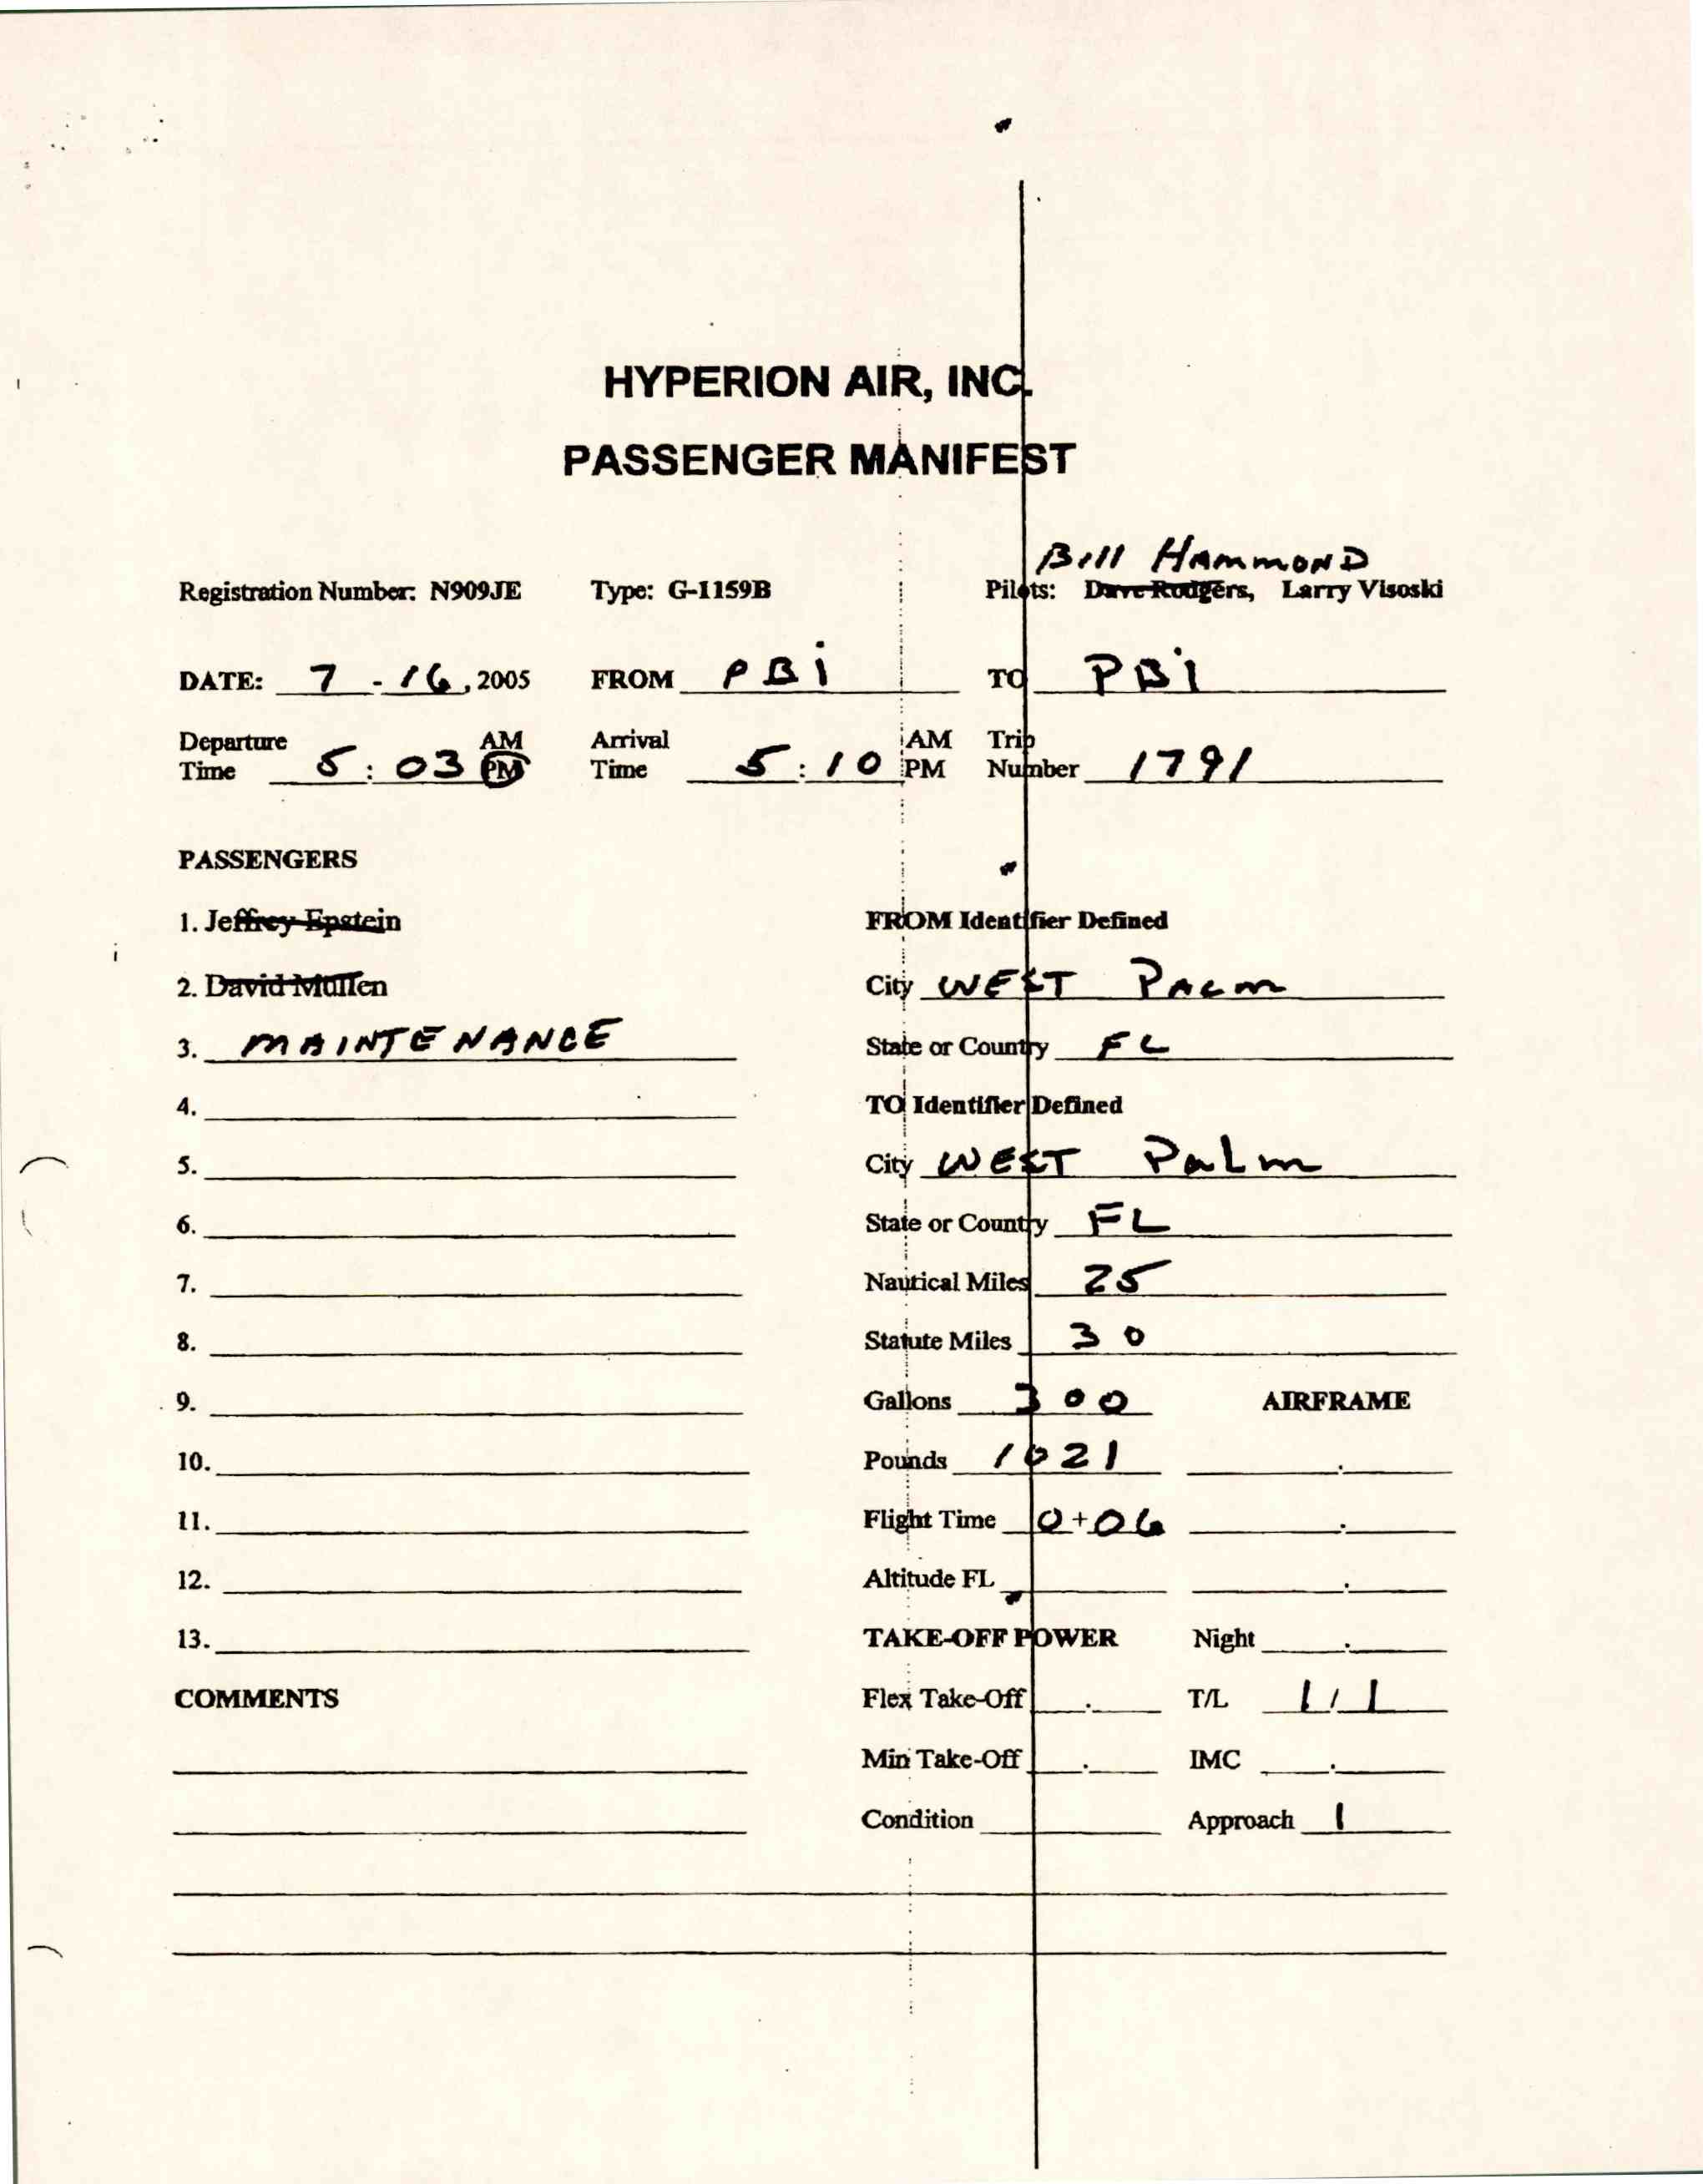 HYPERION AIR, INC.
PASSENGER MANIFEST
Bill HAMMOND
Registration Number: N909JE Type: G-1159B Pilots: Dave Rodgers, Larry Visoski
DATE: 7 - 16, 2005 FROM PBi TO PBi
Departure Time 5:03 AM PM Arrival Time 5:10 AM PM Trip Number 1791
PASSENGERS
1. Jeffrey Epstein FROM Identifier Defined
2. David Mullen City WEST PALM
3. MAINTENANCE State or Country FL
4. TO Identifier Defined
5. City WEST PaLm
6. State or Country FL
7. Nautical Miles 25
8. Statute Miles 30
9. Gallons 300 AIRFRAME
10. Pounds 1021
11. Flight Time 0+06
12. Altitude FL
13. TAKE-OFF POWER Night
COMMENTS Flex Take-Off T/L 1/1
Min Take-Off IMC
Condition Approach 1